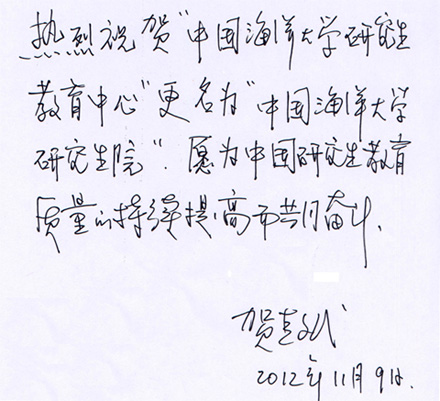 热烈祝贺"中国海洋大学研究生
教育中心"更名为"中国海洋大学
研究生院"。愿为中国研究生教育
质量的持续提高而共同奋斗.
贺克斌
2012年11月9日.